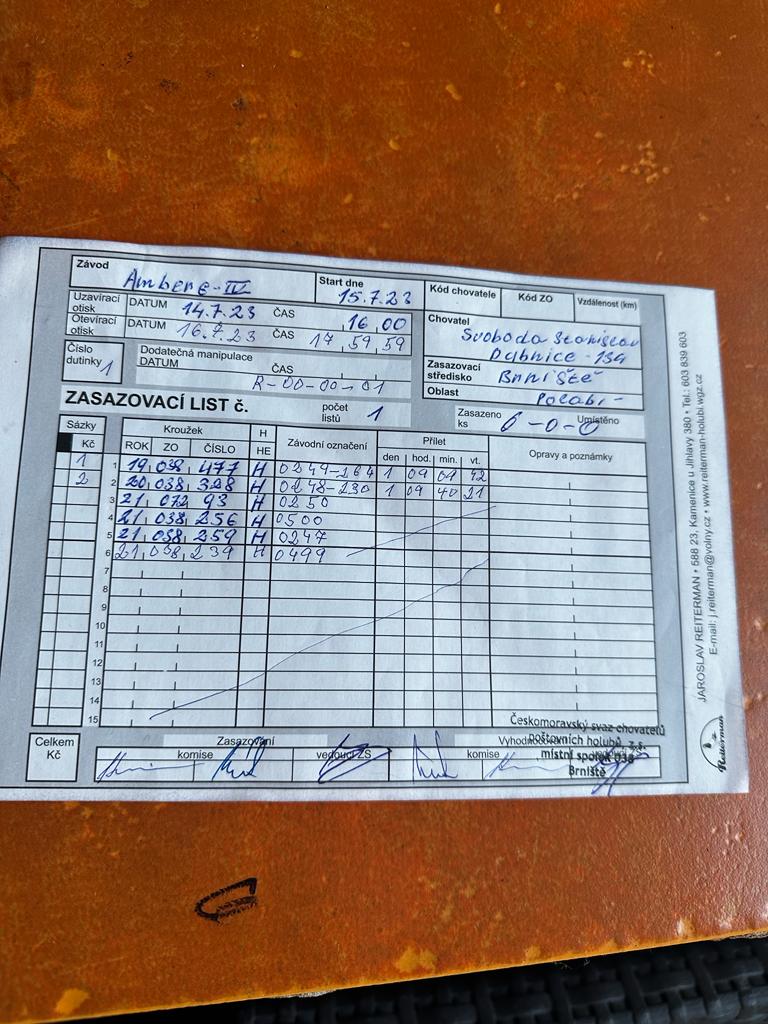 Závod Start dne Kód chovatele Kód ZO Vzdálenost (km)
Amberg-IV 15.7.23
Uzavírací otisk DATUM 14.7.23 ČAS 16,00
Otevírací otisk DATUM 16.7.23 ČAS 17,59,59
Chovatel
Svoboda Stanislav
Dubnice-
Číslo dutinky 1
Dodatečná manipulace
DATUM ČAS
R-00-00-01
Zasazovací středisko Brniště
Oblast Polabí-
ZASAZOVACÍ LIST č. počet listů 1
Zasazeno ks 6-0-0 Umístěno
Sázky Kroužek H Závodní označení Přílet Opravy a poznámky
Kč ROK ZO ČÍSLO HE den hod. min. vt.
1 1 19,038,477 H 0249-264 1 09 09 42
2 2 20,038,328 H 0248-230 1 09 40 21
3 21,072,93 H 0250
4 21,038,256 H 0500
5 21,038,259 H 0247
6 21,038,239 H 0499
7
8
9
10
11
12
13
14
15
Celkem Kč
Zasazování
komise vedoucí ZS komise
Českomoravský svaz chovatelů
poštovních holubů, z.s.
místní spolek 038
Brniště
JAROSLAV REITERMAN • 588 23, Kamenice u Jihlavy 380 • Tel.: 603 839 603
E-mail: j.reiterman@volny.cz • www.reiterman-holubi.wgz.cz
Reiterman